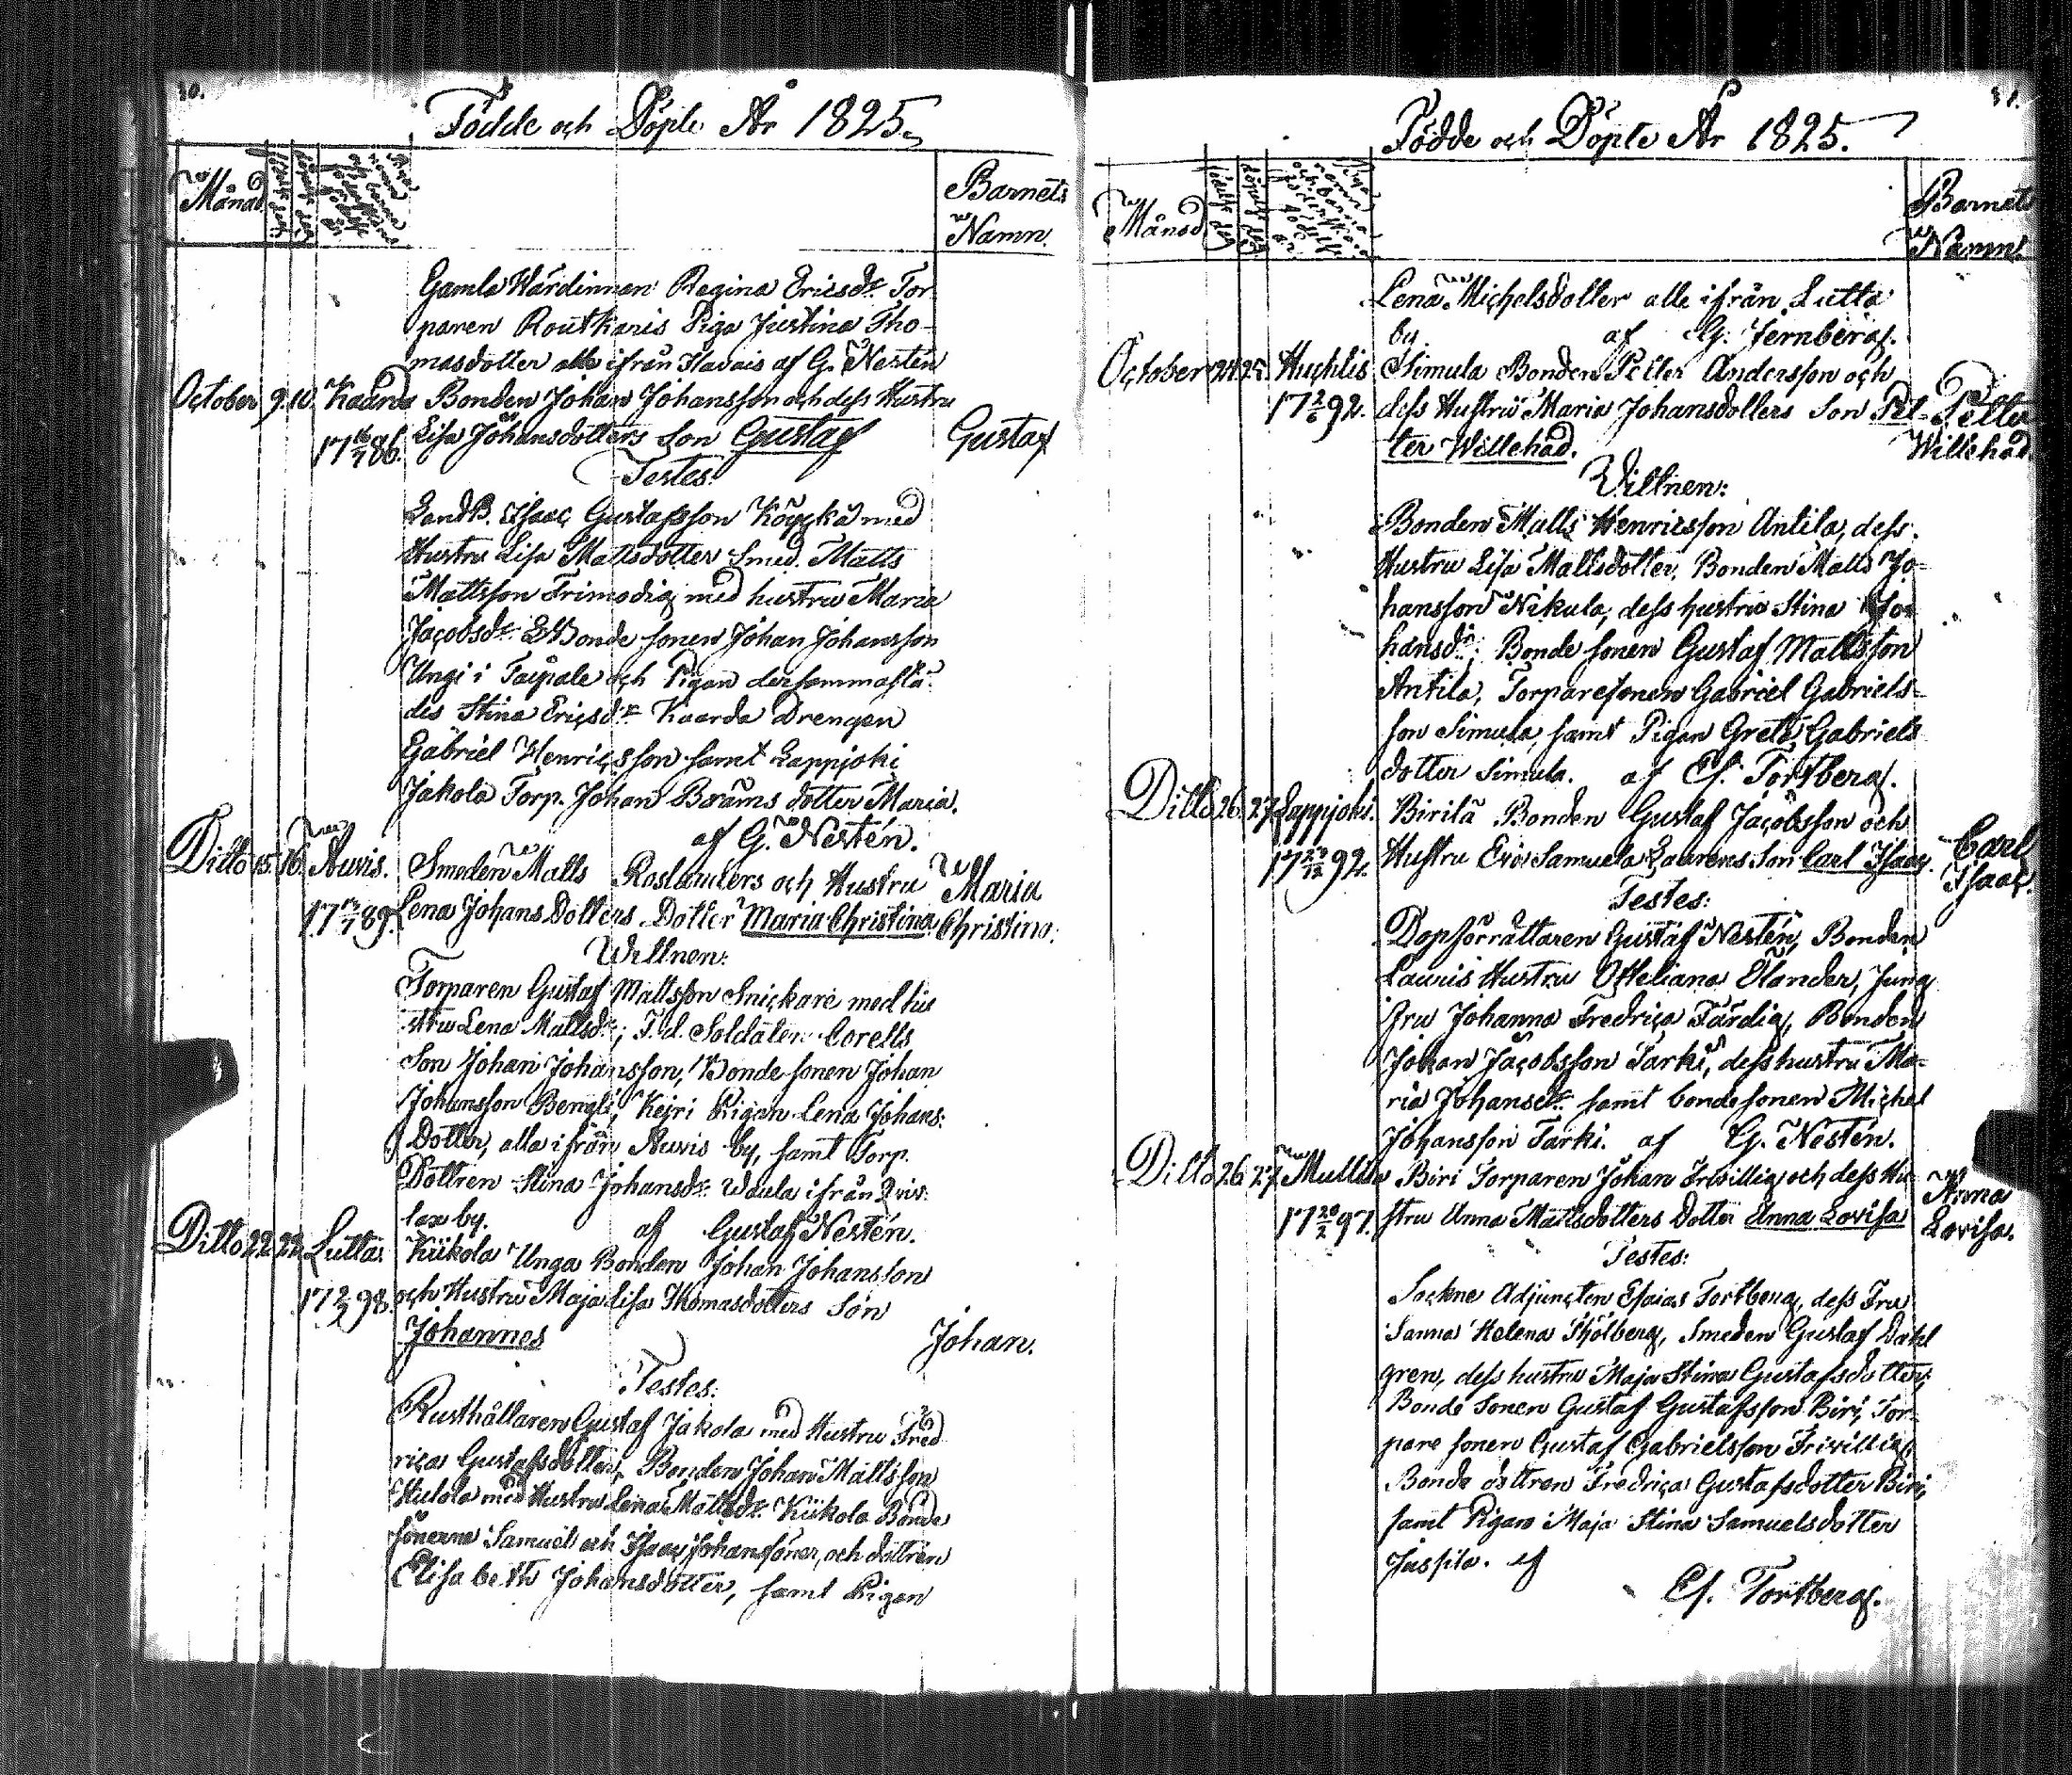 10.
Födde och Döpte År 1825.
Månad
Barnets
Namn.
Gamla Wärdinnan Regina Ericsdr. Tor
paren Routkaris Piga Justina Tho-
masdotter alla ifrån Ilavais af G. Nestén
October 9. 10. Kaarda Bonden Johan Johansson och dess Hustru
17 86. Lisa Johansdotters Son Gustaf Gustaf
Testes:
LandB. Isaac Gustafsson Köyckä med
Hustru Lisa Mattsdotter Smed. Matts
Mattsson Frimodig med hustru Maria
Jacobsdr. Bonde sonen Johan Johansson
Ungi i Taipale och Pigan dersammastä-
des Stina Ericsdr. Kaarda Drengen
Gabriel Henricsson samt Lappjoki
Jakola Torp. Johan Brams dotter Maria.
af G. Nestén.
Ditto 15. 16. Auvis. Smeden Matts Roslanders och Hustru Maria
17 89. Lena Johans Dotters Dotter Maria Christina. Christina.
Wittnen:
Torparen Gustaf Mattsson Snickare med hu
stru Lena Mattsdr.; F. d. Soldaten Corells
Son Johan Johansson, Bonde sonen Johan
Johansson Bengti, Keiri Pigan Lena Johans
Dotter, alla ifrån Auvis by, samt Torp.
Dottren Stina Johansdr. Uaula ifrån Qvis-
lax by. af Gustaf Nestén.
Ditto 22. 23. Lutta. Kükola Unga Bonden Johan Johansson
17 98. och Hustru Maja Lisa Thomasdotters Son
Johannes Johan.
Testes:
Rusthållaren Gustaf Jakola med Hustru Fred
rica Gustafsdotter, Bonden Johan Mattsson
Hulola med Hustru Lena Mattsdr. Kükola Bonde
sönerne Samuel och Isaac Johanssöner, och dottren
Elisabeth Johansdotter, samt Pigan
31.
Födde och Döpte År 1825.
Månad
födelse dag
döpelse dag
Barnets
Namn.
Lena Michelsdotter alla ifrån Lutta
by. af G. Jernberg.
October 24. 25. Huchlis Simula Bonden Petter Andersson och
17 2/6 92. dess Hustru Maria Johansdotters Son Pet- Petter
ter Willehad. Willehad.
Wittnen:
Bonden Matts Henricsson Antila, dess
Hustru Lisa Mattsdotter, Bonden Matts Jo-
hansson Nikula, dess hustru Stina Jo-
hansdr; Bonde sonen Gustaf Mattsson
Antila, Torparesonen Gabriel Gabriels-
son Simula, samt Pigan Greta Gabriels
dotter Simula. af Es. Tortberg.
Ditto 26. 27. Lappjoki. Birilä Bonden Gustaf Jacobsson och Carl
17 92. Hustru Eva Samuela Laurens Son Carl Isaac. Isaac.
Testes:
Dopförrättaren Gustaf Nestén, Bonden
Lauris Hustru Otteliana Elander, Jung
fru Johanna Fredrica Färdig, Bonden
Johan Jacobsson Tarki, dess hustru Ma-
ria Johansdr. samt bondesonen Michel
Johansson Tarki. af G. Nestén.
Ditto 26 27. Mullila Biri Torparen Johan Frivillig och dess Hu- Anna
17 20/2 97. stru Anna Mattsdotters Dotter Anna Lovisa Lovisa.
Testes:
Sockne Adjuncten Esaias Tortberg, dess Fru
Sanna Helena Stjölberg, Smeden Gustaf Dahl
gren, dess hustru Maja Stina Gustafsdotter,
Bonde Sonen Gustaf Gustafsson Biri, Tor-
pare sonen Gustaf Gabrielsson Frivillig,
Bonde dottren Fredrica Gustafsdotter Biri,
samt Pigan Maja Stina Samuelsdotter
Juspila. af
Es. Tortberg.